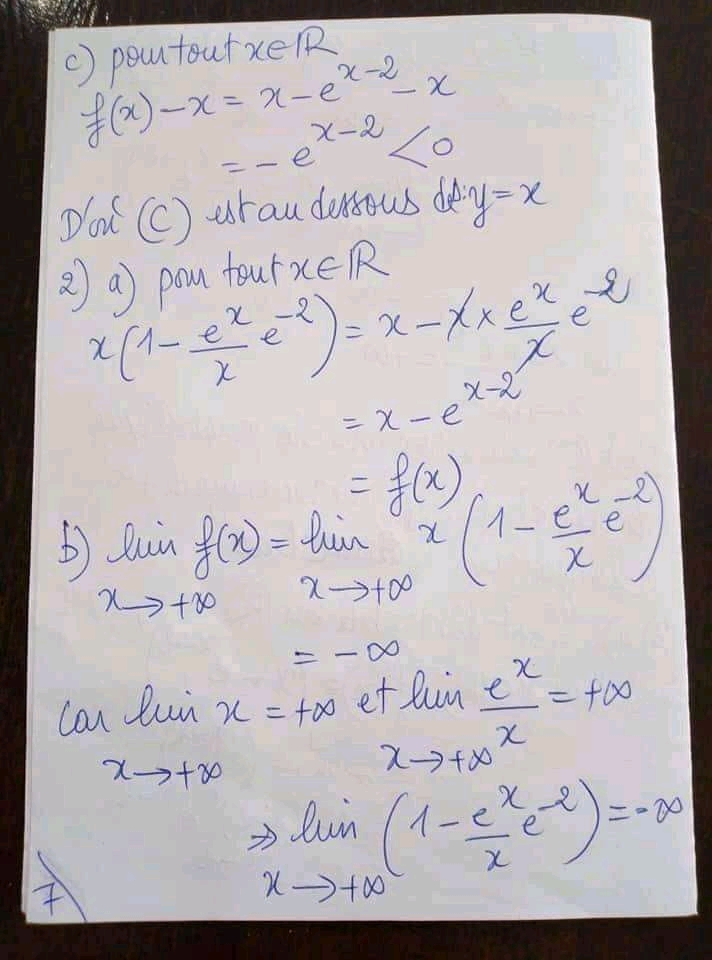 c) pour tout x∈ℝ
f(x)-x = x-e^{x-2}-x
= -e^{x-2} <0
D'où (C) est au dessous de: y=x
2) a) pour tout x∈ℝ
x(1-\frac{e^x}{x}e^{-2}) = x-x×\frac{e^x}{x}e^{-2}
= x-e^{x-2}
= f(x)
b) lim f(x) = lim x(1-\frac{e^x}{x}e^{-2})
x→+∞ x→+∞
= -∞
Car lim x = +∞ et lim \frac{e^x}{x} = +∞
x→+∞ x→+∞
⇒ lim (1-\frac{e^x}{x}e^{-2}) = -∞
x→+∞
7